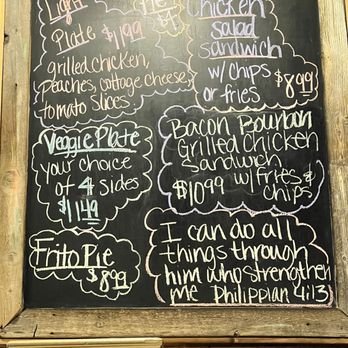 Light
Plate $11.99
grilled chicken,
peaches, cottage cheese,
tomato slices.
Pie
Chicken
Salad
Sandwich
w/ chips
or fries $8.99
Veggie Plate
your choice
of 4 sides
$11.49
Bacon Bourbon
Grilled Chicken
Sandwich
$10.99 w/ fries &
chips
Frito Pie
$8.99
I can do all
things through
him who strengthen
me Philippian 4:13